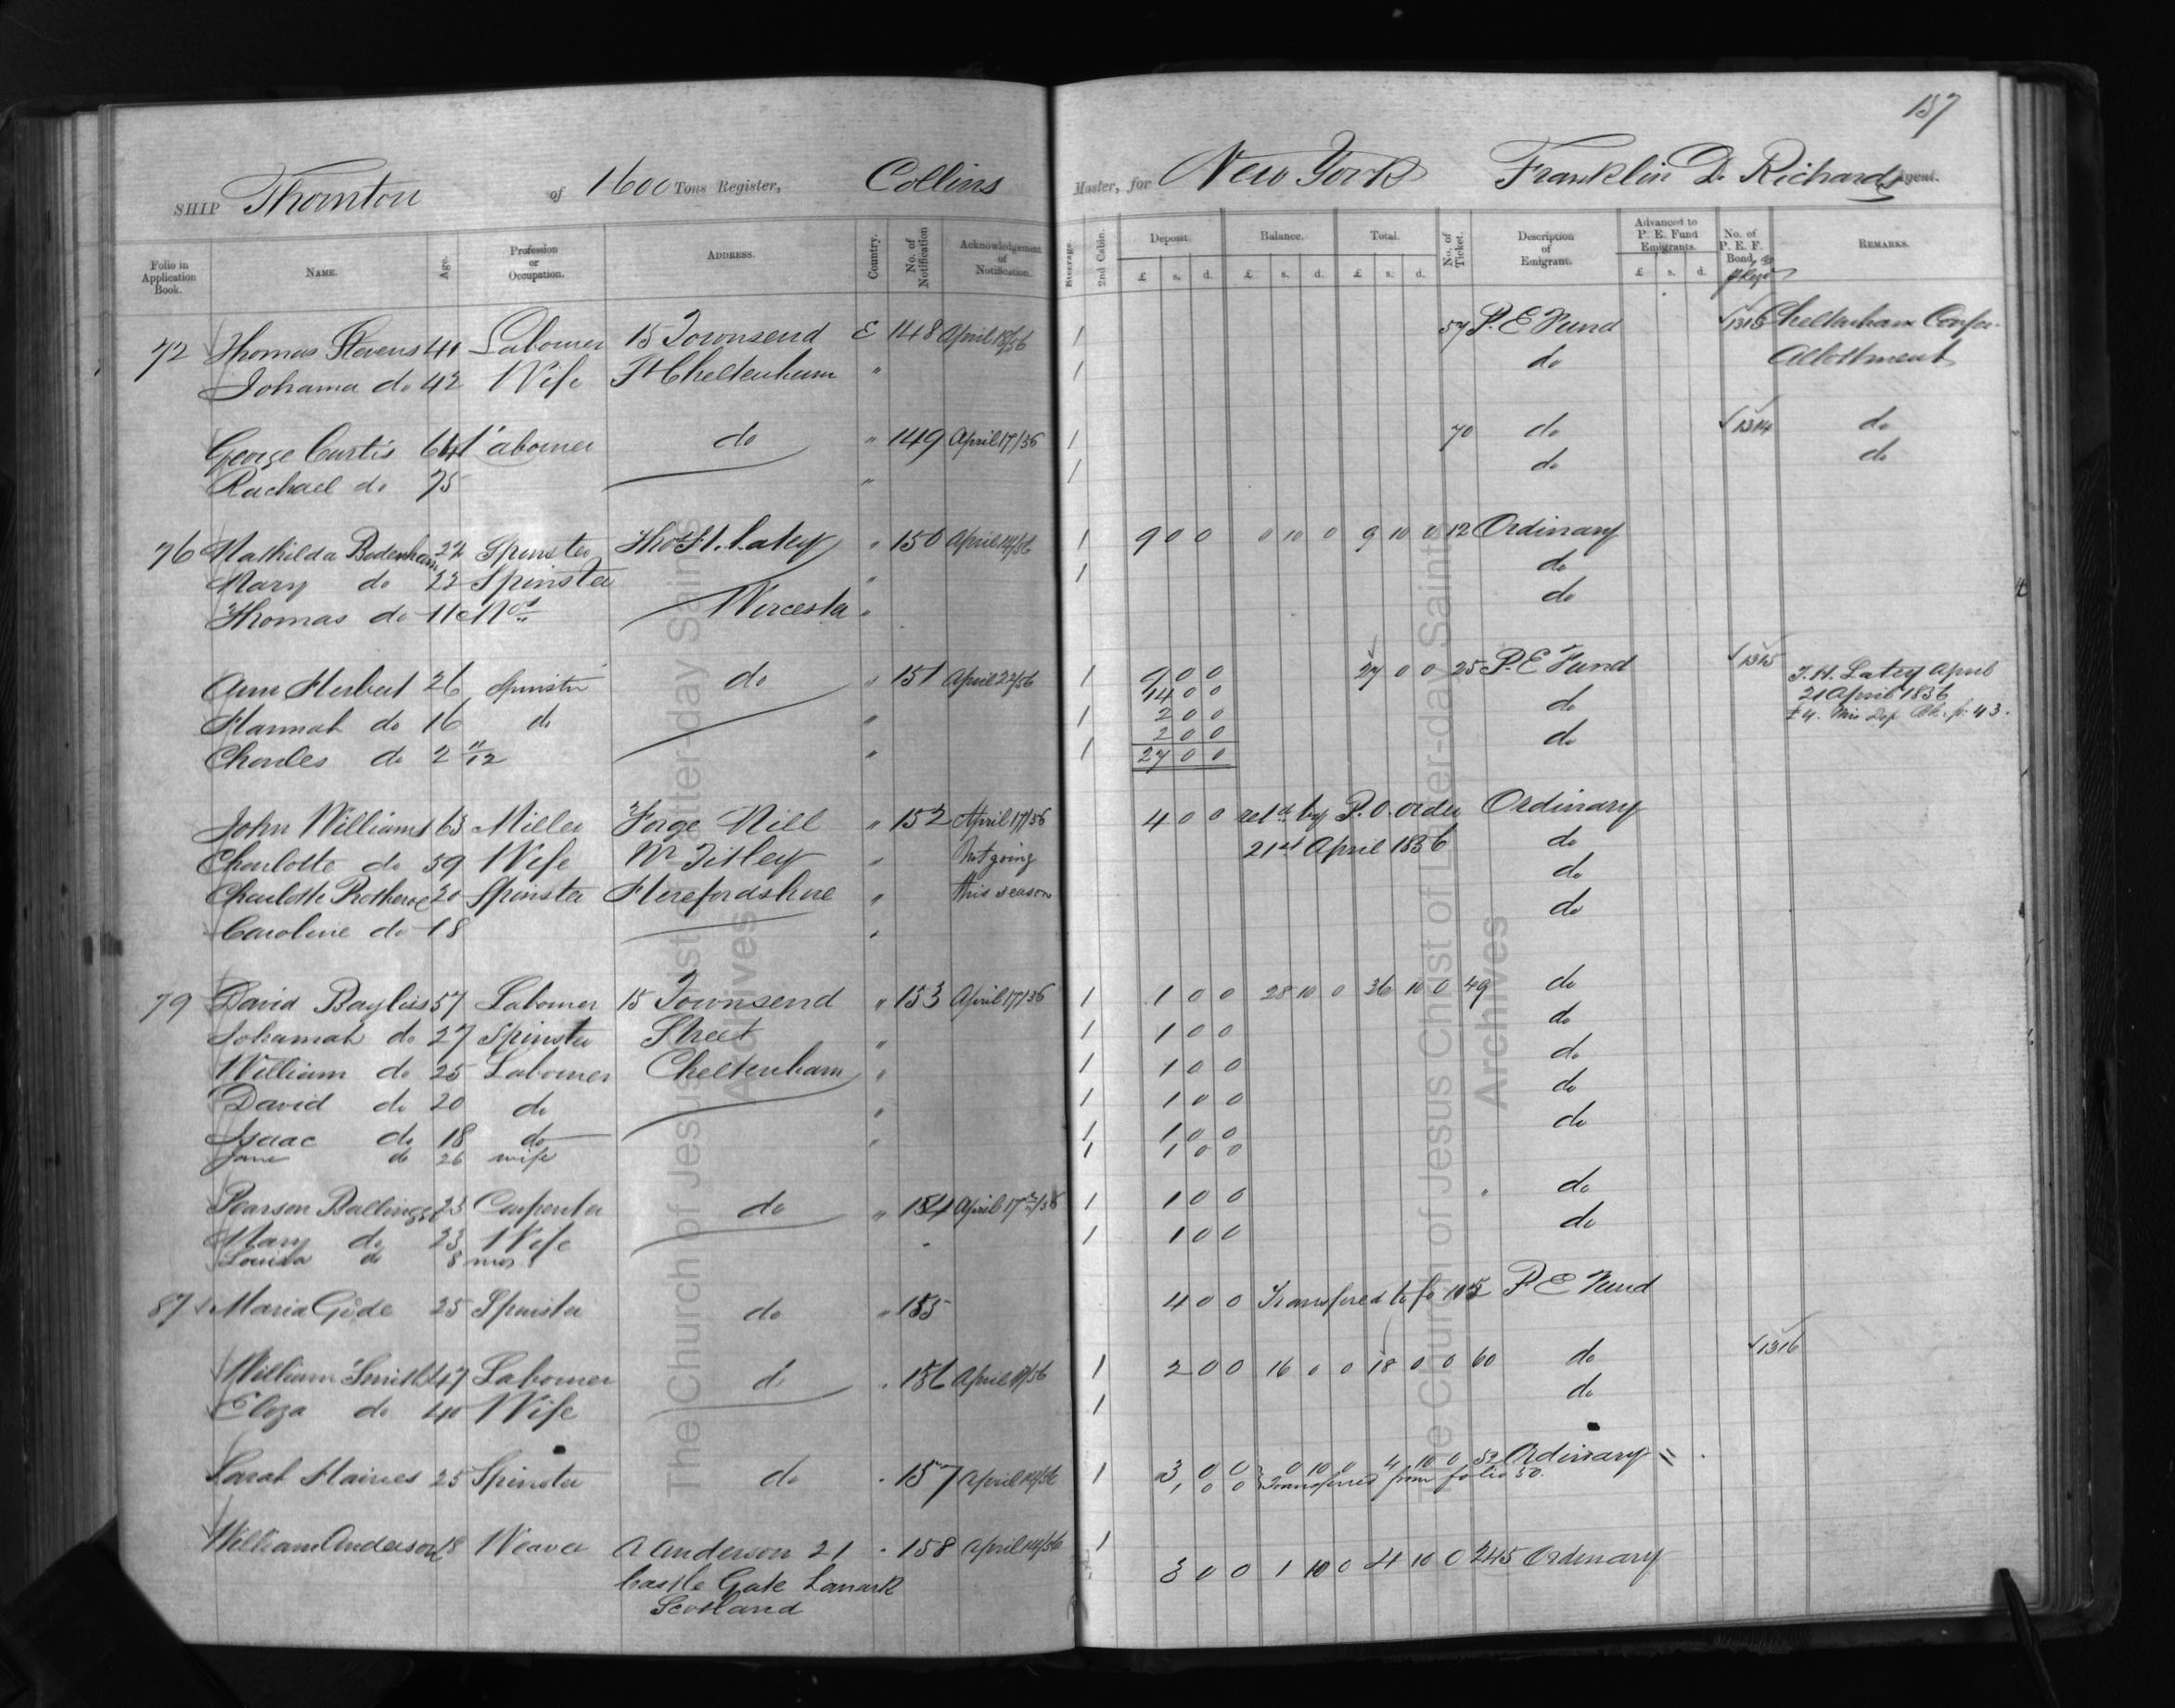 157
SHIP Thornton of 1600 Tons Register, Collins Master, for New York Franklin D. Richards Agent.
Folio in Application Book. NAME. Age. Profession or Occupation. ADDRESS. Country. No. of Notification Acknowledgement of Notification. Steerage. 2nd Cabin. Deposit. Balance. Total. No. of Ticket. Description of Emigrant. Advanced to P. E. Fund Emigrants. No. of P. E. F. Bond, REMARKS.
£ s. d. £ s. d. £ s. d. £ s. d.
72 Thomas Stevens 41 Labourer 15 Townsend E 148 April 18/56 1 57 P. E Fund 1313 Cheltenham Confer.
Johama do 42 Wife St Cheltenham " 1 do Allottment
George Curtis 64 Labourer do " 149 April 17/56 1 70 do 1314 do
Rachael do 75 " 1 do do
76 Mathilda Bodenham 24 Spinster Thos H. Latey " 150 April 14/56 1 9 0 0 0 10 0 9 10 0 12 Ordinary
Mary do 22 Spinster " 1 do
Thomas do 11 Mos Worcester " do
Ann Herbert 26 Spinster do " 151 April 22/56 1 9 0 0 27 0 0 25 P. E Fund 1315 T. H. Latey April
14 0 0 21 April 1856
Hannah do 16 do " 1 2 0 0 do £4. Mis Dep. Bk. p. 43.
2 0 0
Charles do 2 11/12 " 1 27 0 0 do
John Williams 63 Miller Forge Mill " 152 April 17/56 4 0 0 retd by P. O. order Ordinary
Charlotte do 59 Wife Nr Titley " Not going 21st April 1856 do
Charlotte Protheroe 20 Spinster Herefordshire " this season do
Caroline do 18 " do
79 David Bayliss 57 Labourer 15 Townsend " 153 April 17/56 1 1 0 0 28 10 0 36 10 0 49 do
Johamah do 27 Spinster Street " 1 1 0 0 do
William do 25 Labourer Cheltenham " 1 1 0 0 do
David do 20 do " 1 1 0 0 do
Isaac do 18 do " 1 1 0 0 do
Jane do 26 wife 1 1 0 0
Pearson Ballinger 23 Carpenter do " 154 April 17/56 1 1 0 0 " do
Mary do 23 Wife 1 1 0 0 do
Louisa do 8 mos
87 Maria Gide 25 Spinster do " 155 4 0 0 Transfered to fo 105 P E Fund
William Smith 47 Labourer do " 156 April 18/56 1 2 0 0 16 0 0 18 0 0 60 do 1316
Eliza do 40 Wife 1 do
Sarah Haines 25 Spinster do " 157 April 14/56 1 3 0 0 0 10 0 4 10 0 52 Ordinary
1 0 0 Transferred from folio 50.
William Anderson 18 Weaver A Anderson 21 " 158 April 14/56 1 3 0 0 1 10 0 4 10 0 245 Ordinary
Castle Gate Lanark
Scotland
The Church of Jesus Christ of Latter-day Saints
Archives
The Church of Jesus Christ of Latter-day Saints
Archives